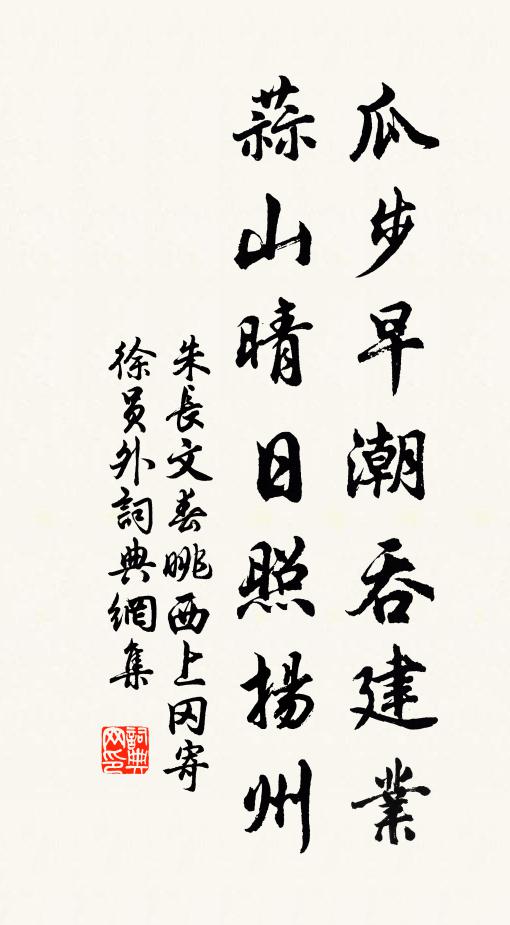 瓜步早潮吞建業
蒜山晴日照揚州
朱長文春眺西上冈寄
徐員外詞典網集
詞典网印